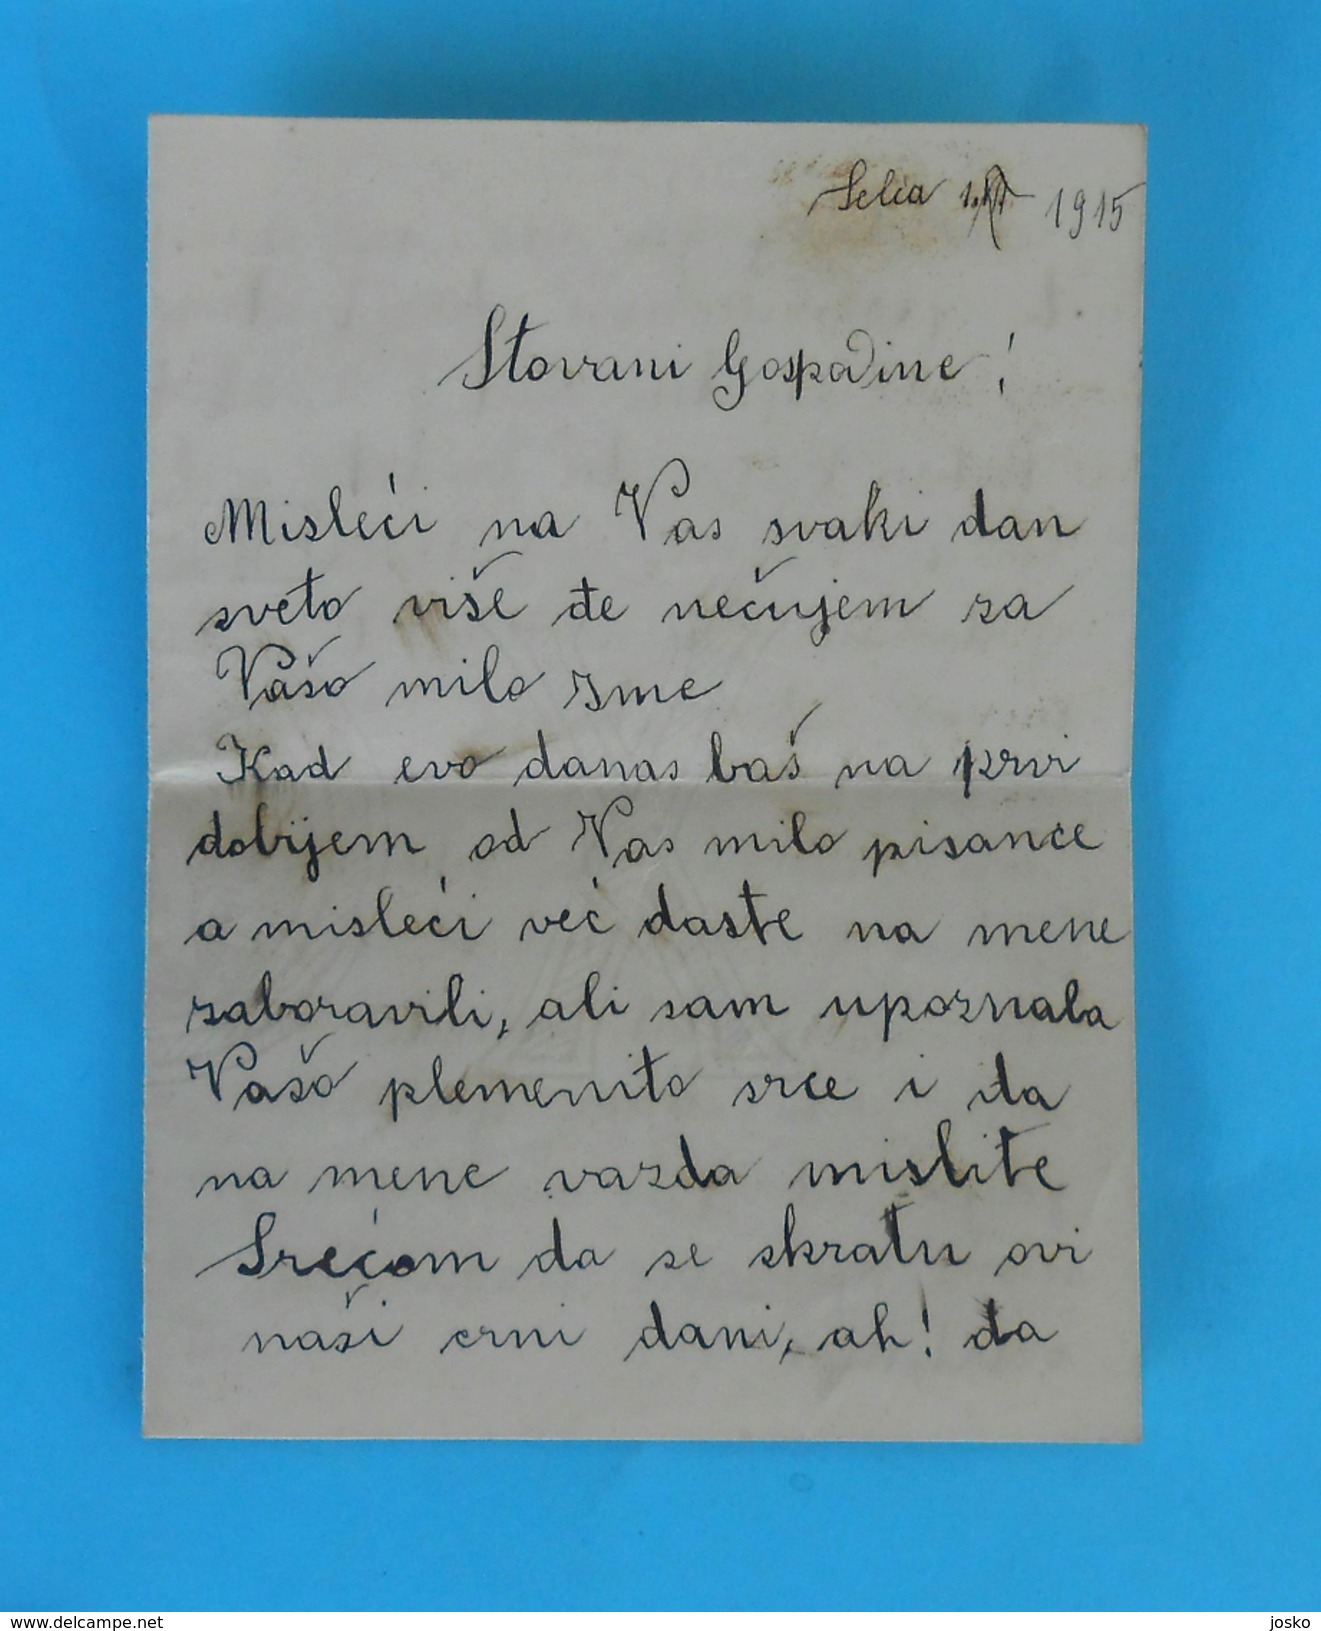 Selca 1915
Štovani Gospodine!
Misleći na Vas svaki dan
sveto više đe nečujem za
Vašo milo Ime
Kad evo danas baš na prvi
dobijem od Vas milo pisance
a misleći već daste na mene
zaboravili, ali sam upoznala
Vašo plemenito srce i da
na mene vazda mislite
Srećom da se skratu ovi
naši crni dani, ah! da
www.delcampe.net
josko